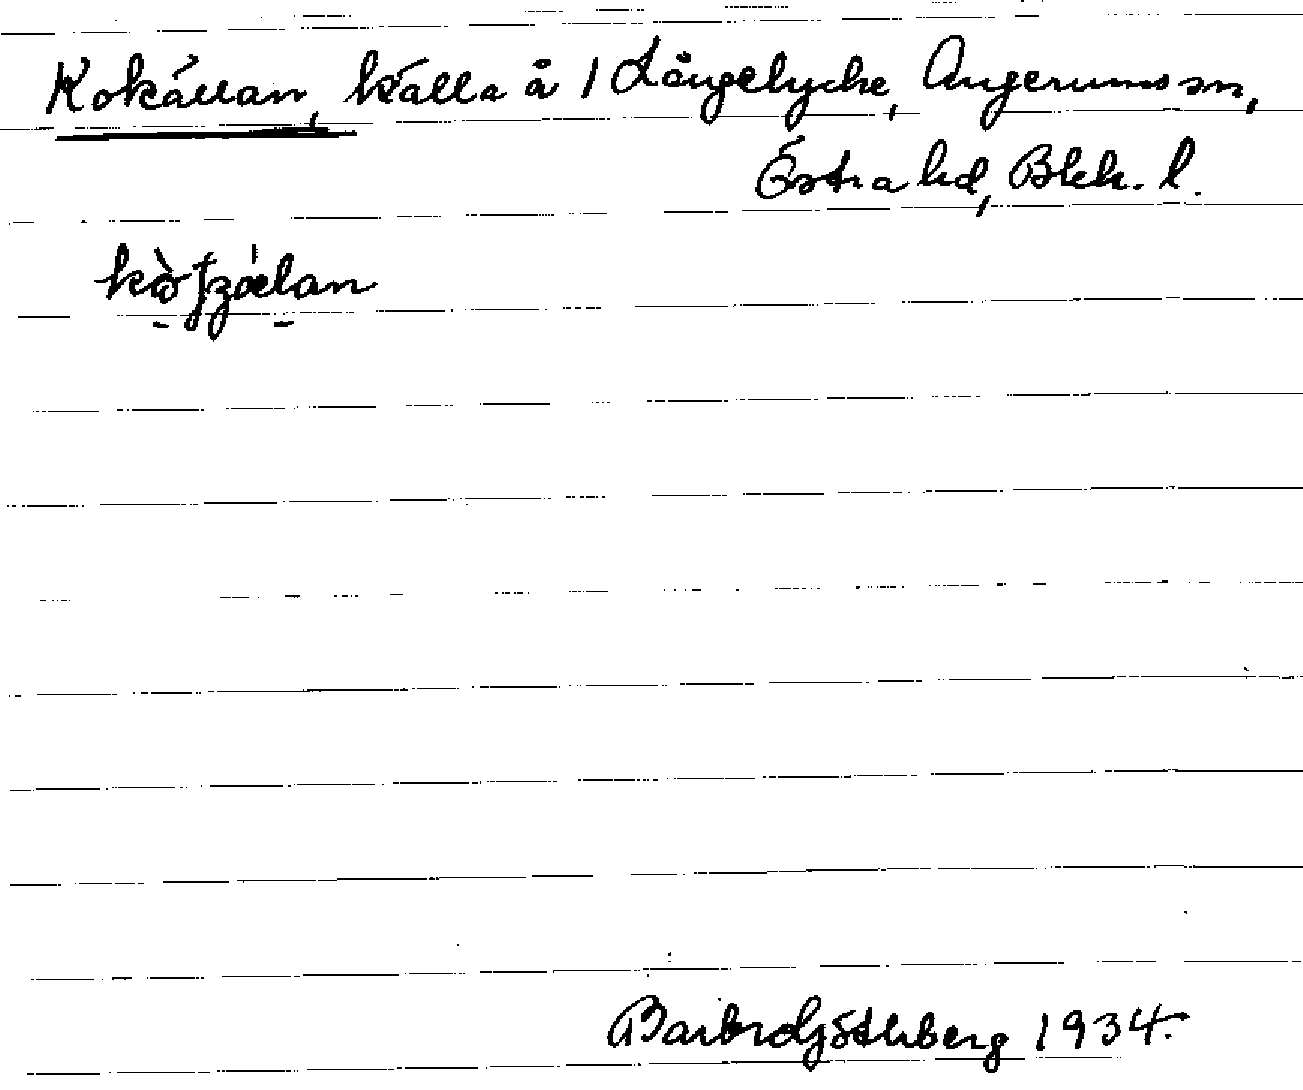 Kokällan, källa å 1 Långelycke, Augerums sn,
Östra hd, Blek. l.
Barbro Götlberg 1934.